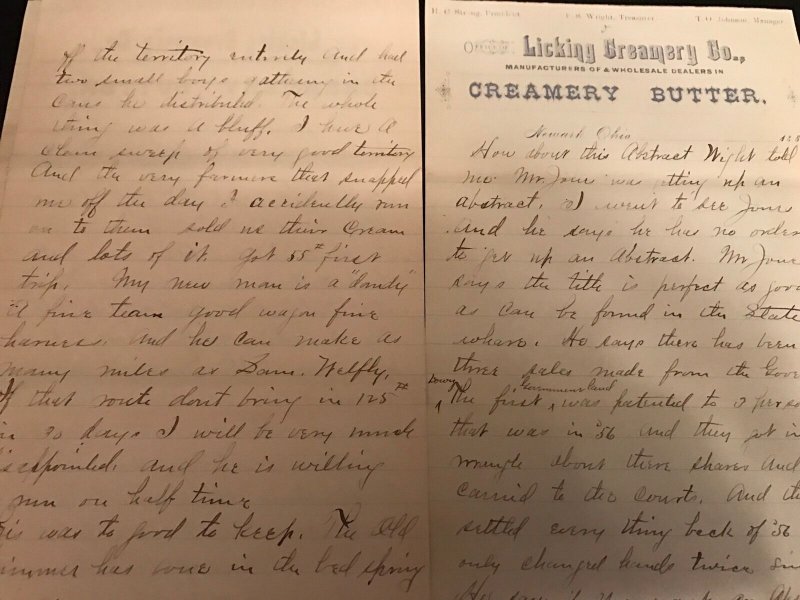 of the territory entirely and had
two small boys gathering in the
Cans he distributed. The whole
thing was a bluff. I have a
clean sweep of very good territory
And the very farmers that snapped
me off the day I accidently run
on to them sold us their Cream
and lots of it. got 55# first
trip. My new man is a "dandy"
A fine team good wagon fine
harness. and he can make as
many miles as Dam. Welfly.
If that route dont bring in 125#
in 30 days I will be very much
isappointed. and he is willing
run on half time
is was to good to keep. The Old
immer has gone in the bed spring
H. C. Strong, President. F. S. Wright, Treasurer. T. O. Johnson, Manager.
Office of Licking Creamery Co.,
MANUFACTURERS OF & WHOLESALE DEALERS IN
CREAMERY BUTTER.
Newark Ohio
How about this Abstract Wright told
me Mr Jones was getting up an
abstract. I went to see Jones
And he says he has no order
to get up an Abstract. Mr Jone
says the title is perfect as good
as can be found in the State
where. He says there has been
three sales made from the Gove
The first Government land was patented to 3 perso
that was in '56 and they got in
wrangle about there shares And
carried to the courts. And th
settled every thing back of '56
only changed hands twice sin